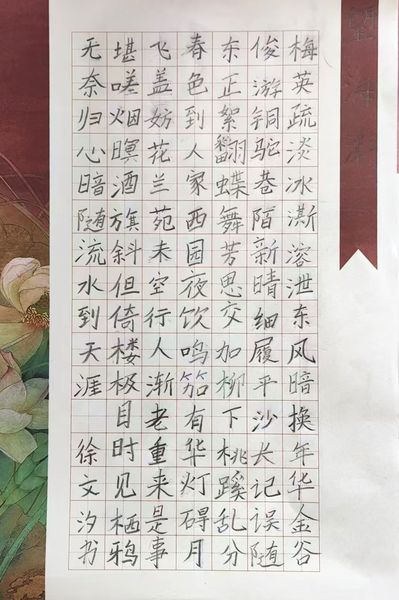 望海潮
梅英疏淡冰澌溶泄东风暗换年华金谷
俊游铜驼巷陌新晴细履平沙长记误随
东正絮翻蝶舞芳思交加柳下桃蹊乱分
春色到人家西园夜饮鸣笳有华灯碍月
飞盖妨花兰苑未空行人渐老重来是事
堪嗟烟暝酒旗斜但倚楼极目时见栖鸦
无奈归心暗随流水到天涯 徐文汐书